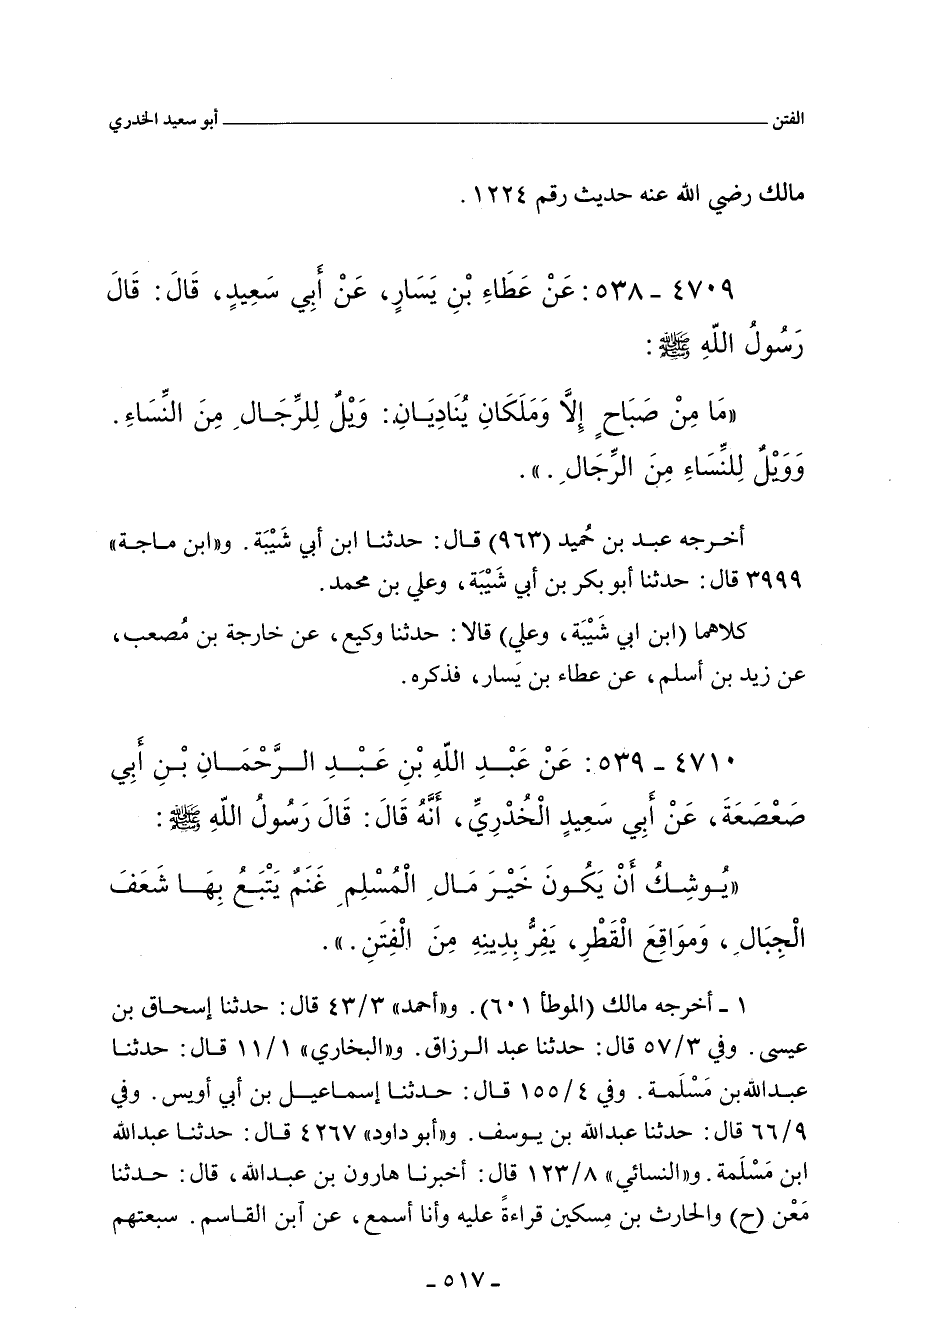 الفتن ــــــــــــــــــــ أبو سعيد الخدري
مالك رضي الله عنه حديث رقم ١٢٢٤ .
٤٧٠٩ ـ ٥٣٨ : عَنْ عَطَاءِ بْنِ يَسَارٍ، عَنْ أَبِي سَعِيدٍ، قَالَ: قَالَ
رَسُولُ اللّهِ ﷺ :
«مَا مِنْ صَبَاحٍ إِلَّا وَمَلَكَانِ يُنَادِيَانِ: وَيْلٌ لِلرِّجَالِ مِنَ النِّسَاءِ.
وَوَيْلٌ لِلنِّسَاءِ مِنَ الرِّجَالِ.».
أخرجه عبد بن حُميد (٩٦٣) قال: حدثنا ابن أبي شَيْبَة. و«ابن ماجة»
٣٩٩٩ قال: حدثنا أبو بكر بن أبي شَيْبَة، وعلي بن محمد.
كلاهما (ابن ابي شَيْبَة، وعلي) قالا: حدثنا وكيع، عن خارجة بن مُصعب،
عن زيد بن أسلم، عن عطاء بن يَسار، فذكره.
٤٧١٠ ـ ٥٣٩ : عَنْ عَبْدِ اللّهِ بْنِ عَبْدِ الرَّحْمَانِ بْنِ أَبِي
صَعْصَعَةَ، عَنْ أَبِي سَعِيدٍ الْخُدْرِيِّ، أَنَّهُ قَالَ: قَالَ رَسُولُ اللّهِ ﷺ :
«يُوشِكُ أَنْ يَكُونَ خَيْرَ مَالِ الْمُسْلِمِ غَنَمٌ يَتْبَعُ بِهَا شَعَفَ
الْجِبَالِ، وَمَوَاقِعَ الْقَطْرِ، يَفِرُّ بِدِينِهِ مِنَ الْفِتَنِ.».
١ ـ أخرجه مالك (الموطأ ٦٠١). و«أحمد» ٤٣/٣ قال: حدثنا إسحاق بن
عيسى. وفي ٥٧/٣ قال: حدثنا عبد الرزاق. و«البخاري» ١١/١ قال: حدثنا
عبدالله بن مَسْلَمة. وفي ١٥٥/٤ قال: حدثنا إسماعيل بن أبي أويس. وفي
٦٦/٩ قال: حدثنا عبدالله بن يوسف. و«أبو داود» ٤٢٦٧ قال: حدثنا عبدالله
ابن مَسْلَمة. و«النسائي» ١٢٣/٨ قال: أخبرنا هارون بن عبدالله، قال: حدثنا
مَعْن (ح) والحارث بن مِسكين قراءةً عليه وأنا أسمع، عن آبن القاسم. سبعتهم
ـ ٥١٧ ـ